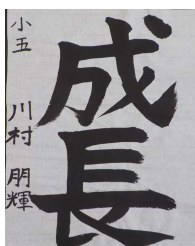 成長
小五 川村 朋輝